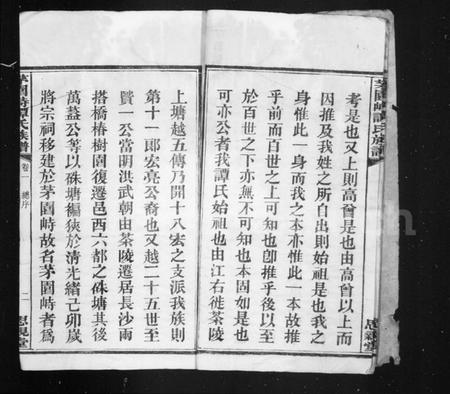 考是也又上則高曾是也由高曾以上而
因推及我姓之所自出則始祖是也我之
身惟此一身而我之本亦惟此一本故推
乎前而百世之上可知也卽推乎後以至
於百世之下亦無不可知也本固如是也
可亦公者我譚氏始祖也由江右徙茶陵
茅園峙譚氏族譜
卷一
總序
二
思親堂
上塘越五傳乃開十八宏之支派我族則
第十一郎宏亮公裔也又越二十五世至
贊一公當明洪武朝由茶陵遷居長沙南
搭橋椿樹園復遷邑西六都之硃塘其後
萬葢公等以硃塘褊狹於清光緒己卯歲
將宗祠移建於茅園峙故右茅園峙者爲